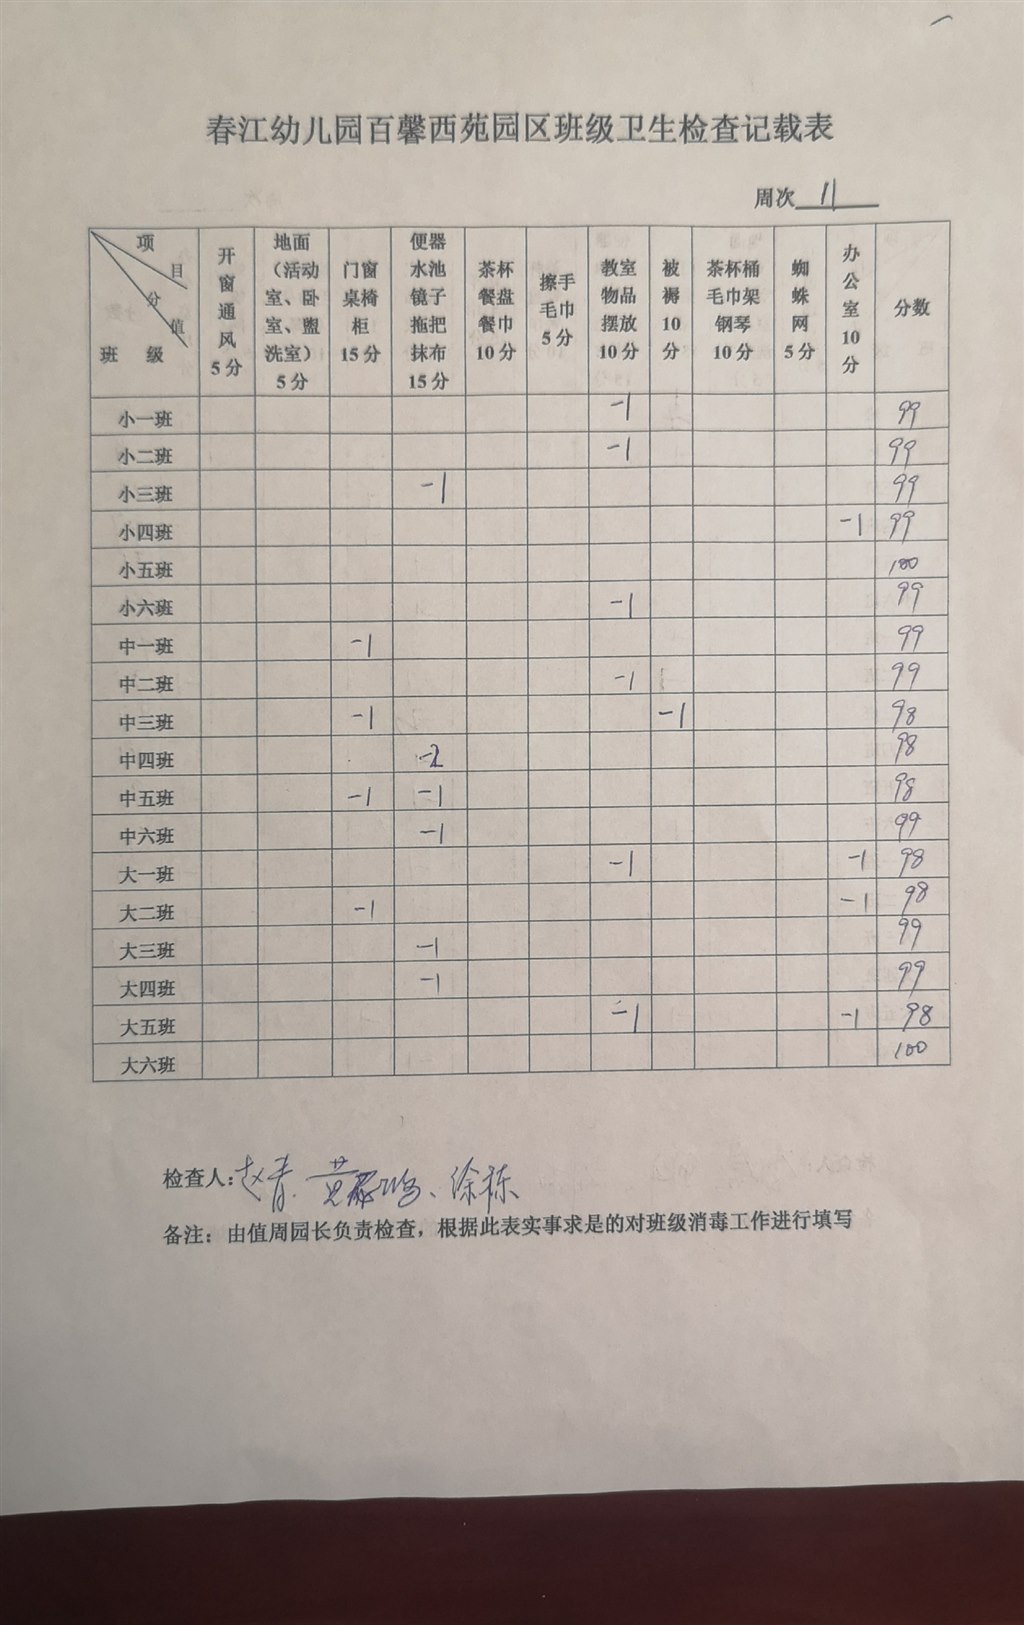 春江幼儿园百馨西苑园区班级卫生检查记载表
周次 11
项目 分值 班级 开窗通风5分 地面（活动室、卧室、盥洗室）5分 门窗桌椅柜15分 便器水池镜子拖把抹布15分 茶杯餐盘餐巾10分 擦手毛巾5分 教室物品摆放10分 被褥10分 茶杯桶毛巾架钢琴10分 蜘蛛网5分 办公室10分 分数
小一班 -1 99
小二班 -1 99
小三班 -1 99
小四班 -1 99
小五班 100
小六班 -1 99
中一班 -1 99
中二班 -1 99
中三班 -1 -1 98
中四班 -2 98
中五班 -1 -1 98
中六班 -1 99
大一班 -1 -1 98
大二班 -1 -1 98
大三班 -1 99
大四班 -1 99
大五班 -1 -1 98
大六班 100
检查人：赵青、徐栋
备注：由值周园长负责检查，根据此表实事求是的对班级消毒工作进行填写